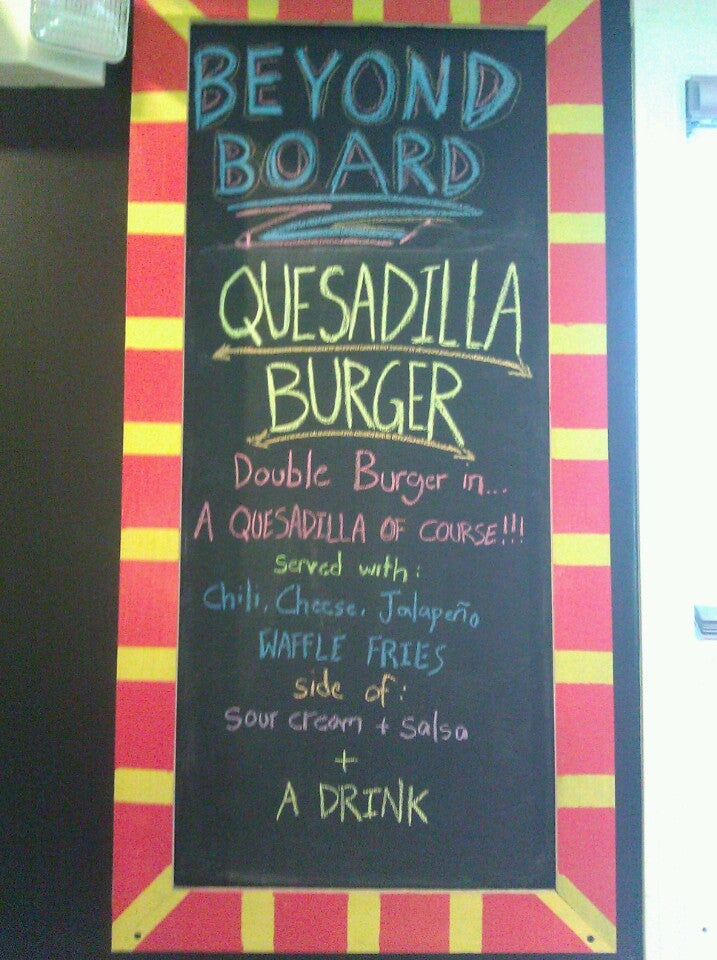 BEYOND
BOARD
QUESADILLA
BURGER
Double Burger in...
A QUESADILLA OF COURSE!!!
served with:
Chili, Cheese, Jalapeño
WAFFLE FRIES
side of:
sour cream + salsa
+
A DRINK